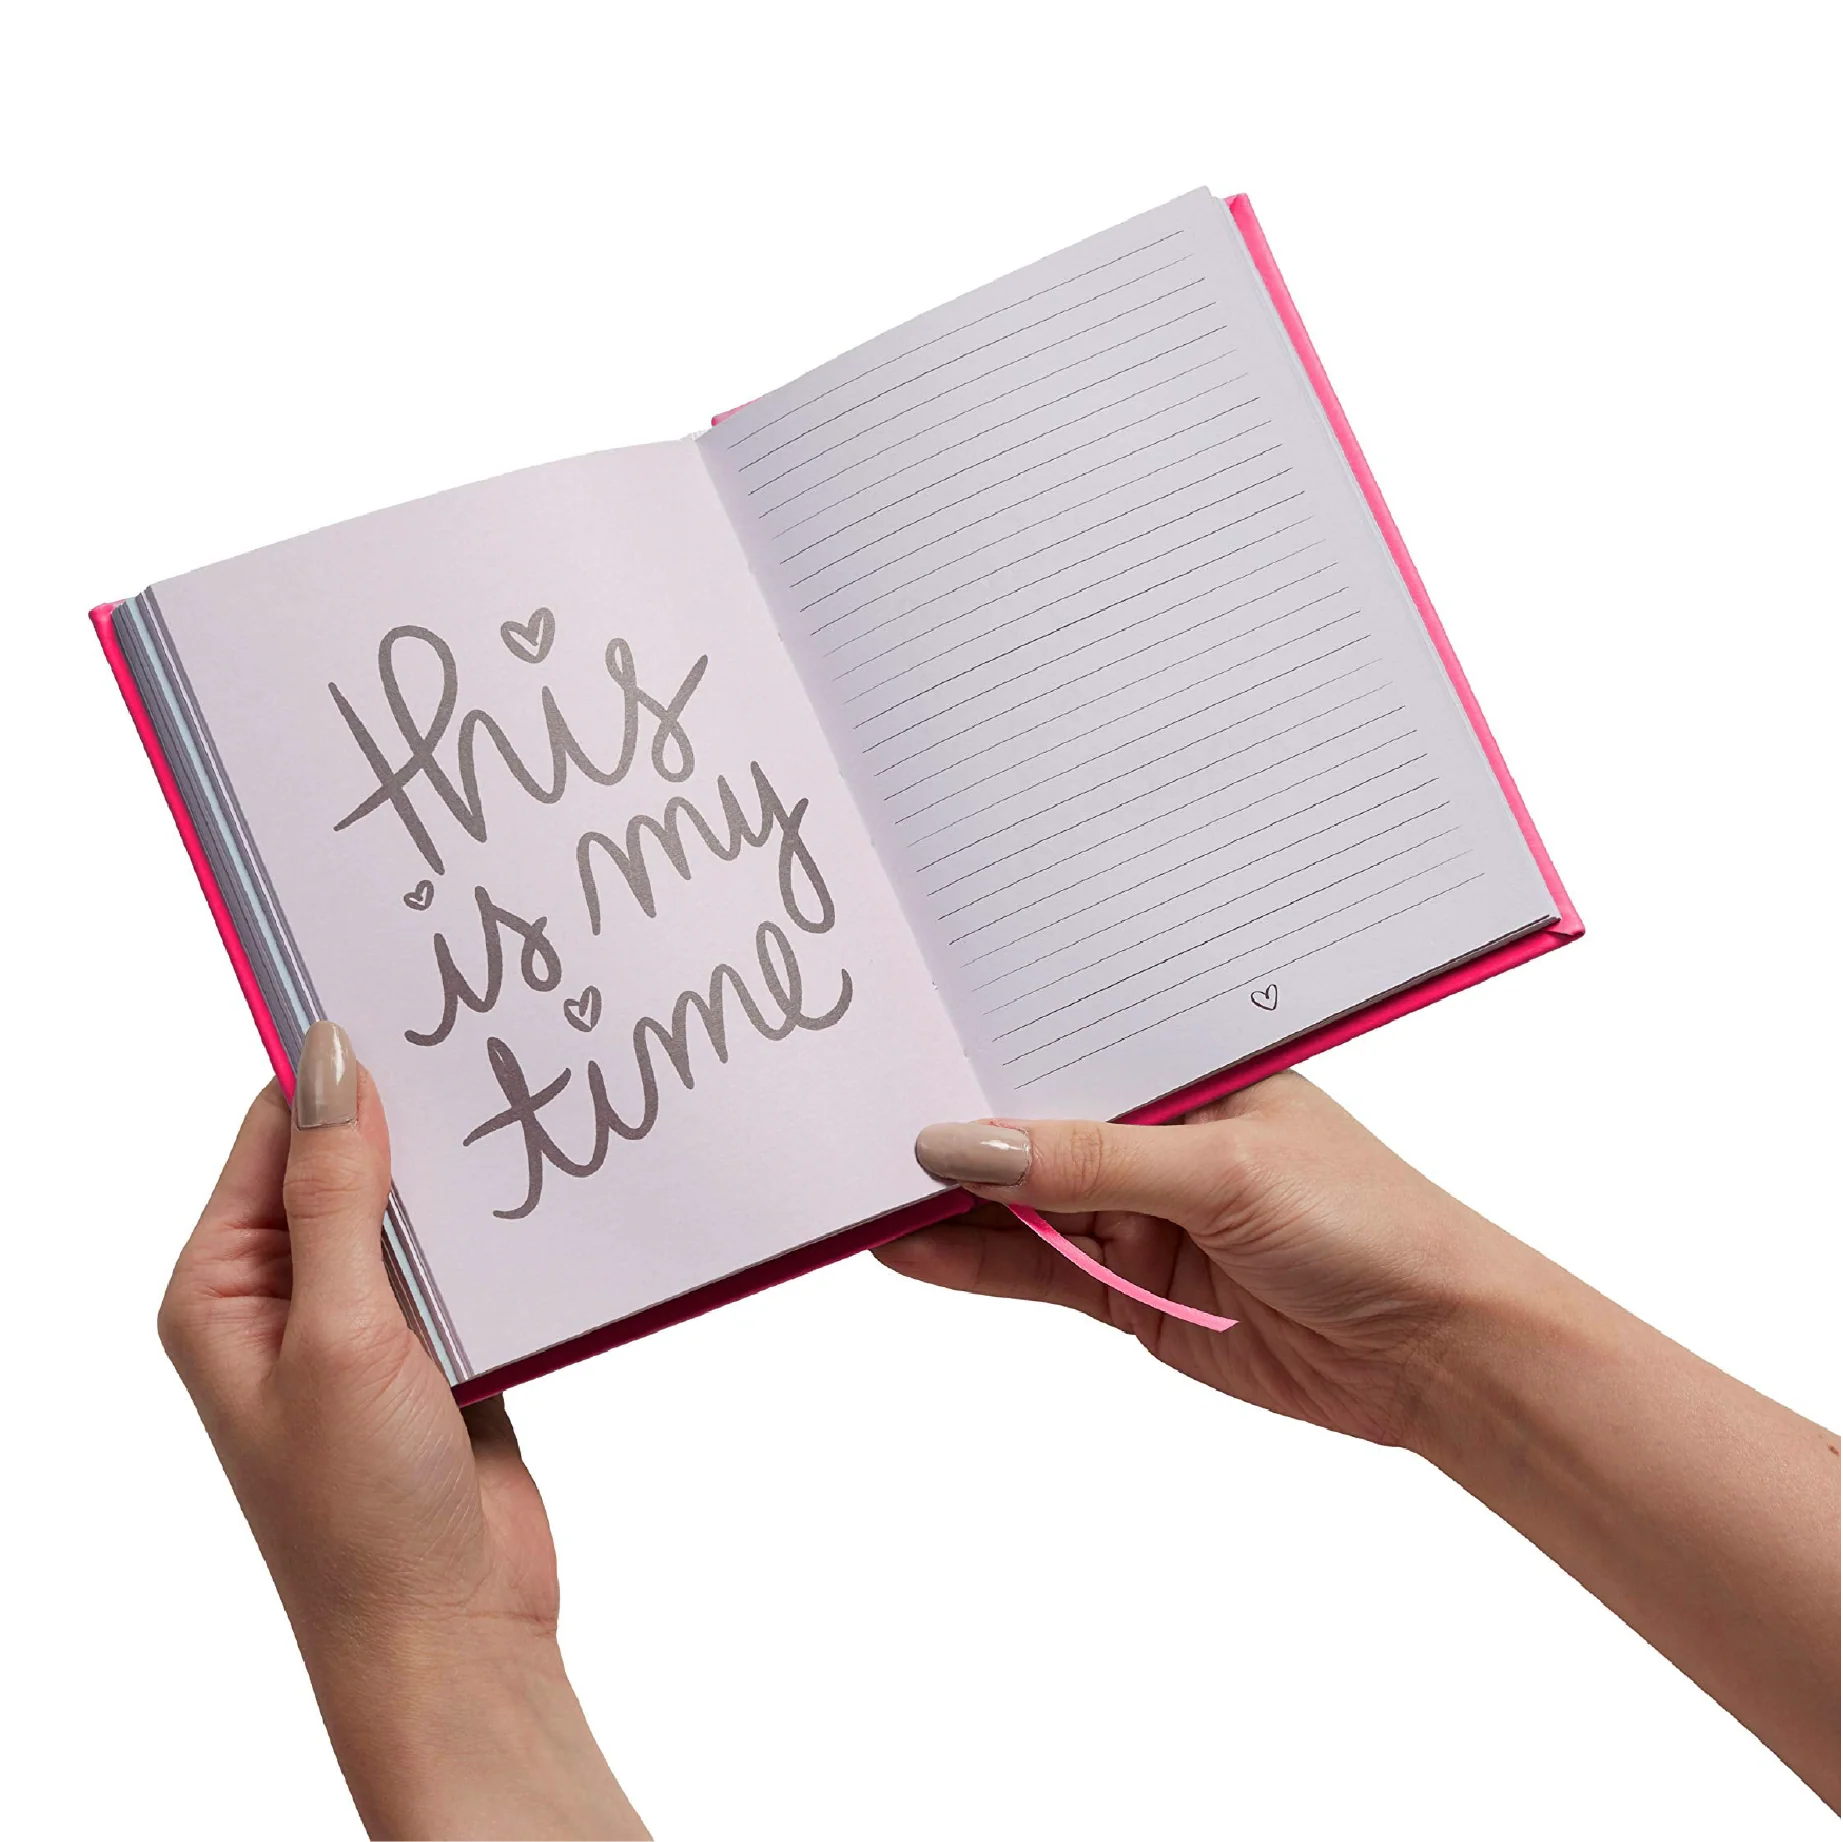 this
is my
time